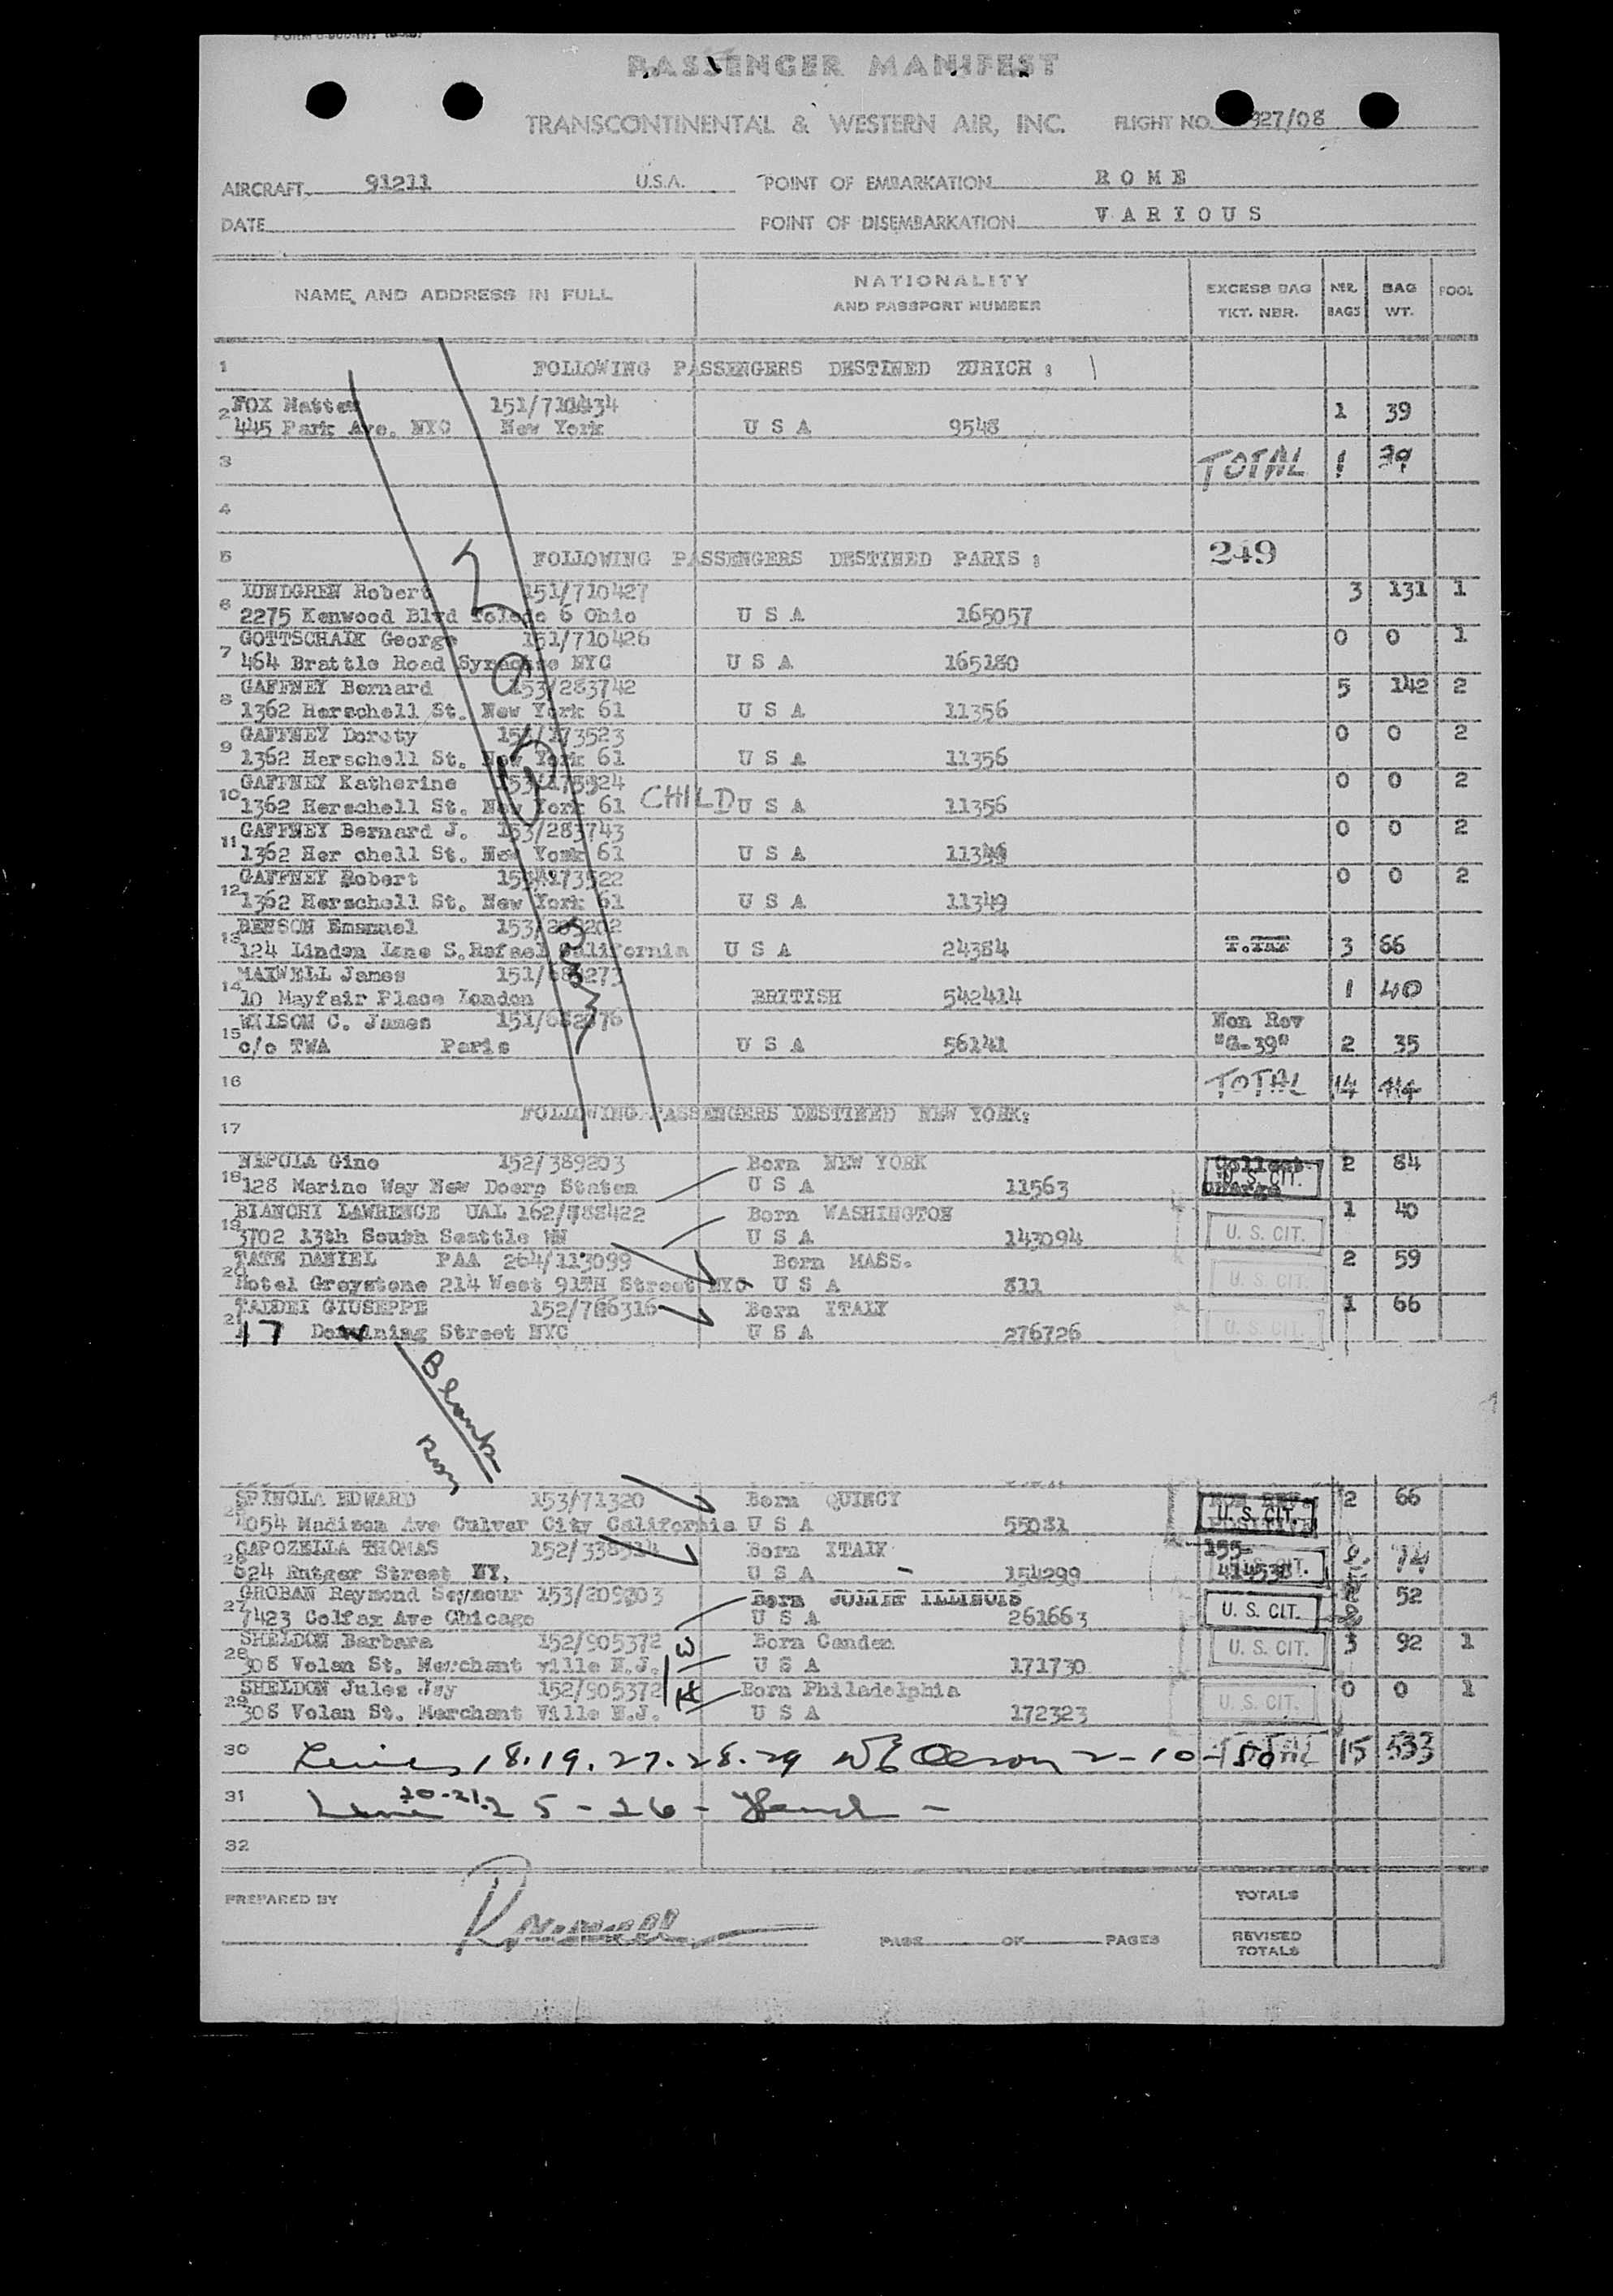 PASSENGER MANIFEST
TRANSCONTINENTAL & WESTERN AIR, INC. FLIGHT NO. 927/08
AIRCRAFT 91211 U.S.A. POINT OF EMBARKATION ROME
DATE POINT OF DISEMBARKATION VARIOUS
NAME AND ADDRESS IN FULL NATIONALITY AND PASSPORT NUMBER EXCESS BAG TKT. NBR. NBR. BAGS BAG WT. POOL
1 FOLLOWING PASSENGERS DESTINED ZURICH :
FOX Matted 151/710434
2 445 Park Ave. NYC New York U S A 9548 1 39
3 TOTAL 1 39
4
5 FOLLOWING PASSENGERS DESTINED PARIS : 249
LUNDGREN Robert 151/710427 3 131 1
6 2275 Kenwood Blvd Toledo 6 Ohio U S A 165057
GOTTSCHALK George 151/710426 0 0 1
7 464 Brattle Road Syracuse NYC U S A 165180
GAFFNEY Bernard 153/283742 5 142 2
8 1362 Herschell St. New York 61 U S A 11356
GAFFNEY Doroty 153/173523 0 0 2
9 1362 Herschell St. New York 61 U S A 11356
GAFFNEY Katherine 153/173524 0 0 2
10 1362 Herschell St. New York 61 CHILD U S A 11356
GAFFNEY Bernard J. 153/283743 0 0 2
11 1362 Her chell St. New York 61 U S A
GAFFNEY Robert 153/173522 0 0 2
12 1362 Herschell St. New York 61 U S A 11349
BENSON Emanuel
13 124 Linden Lane S.Rafael California U S A 24384 3 66
MAXWELL James
14 10 Mayfair Place London BRITISH 542414 1 40
WILSON C. James Non Rev
15 c/o TWA Paris U S A 56141 "G-39" 2 35
16 TOTAL 14
FOLLOWING PASSENGERS DESTINED NEW YORK:
17
NEPOLA Gino 152/389203 Born NEW YORK Collect 2 84
18 128 Marine Way New Doerp Staten U S A 11563 charge U. S. CIT.
BIANCHI LAWRENCE UAL 162/788422 Born WASHINGTON 1 40
19 3702 13th South Seattle WN U S A 143094 U. S. CIT.
TATE DANIEL PAA 264/113099 Born MASS. 2 59
20 Hotel Greystone 214 West 91TH Street NYC U S A 811 U. S. CIT.
TADDEI GIUSEPPE 152/786316 Born ITALY 1 66
21 17 Downing Street NYC U S A 276726 U. S. CIT.
Blank
SPINOLA EDWARD 153/71320 Born QUINCY NON REV. 2 66
25 4054 Madison Ave Culver City California U S A 55081 POSITIVE U. S. CIT.
CAPOZELLA THOMAS 152/338514 Born ITALY 155- 74
26 624 Rutger Street NY, U S A 154299 414538 U. S. CIT.
GROBAN Raymond Seymour 153/209303 Born JOLIET ILLINOIS 52
27 7423 Colfax Ave Chicago U S A 261663 U. S. CIT. 2
SHELDON Barbara 152/905372 Born Camden 3 92 1
28 308 Volan St. Merchant ville N.J. U S A 171730 U. S. CIT.
SHELDON Jules Jay 152/905372 Born Philadelphia 0 0 1
29 308 Volan St. Merchant Ville N.J. U S A 172323 U. S. CIT.
30 Lines 18.19.27.28.29 Olson 2-10-50 TOTAL 15 533
31 Line 20-21. 25-26-
32
PREPARED BY TOTALS
PAGE OF PAGES REVISED TOTALS